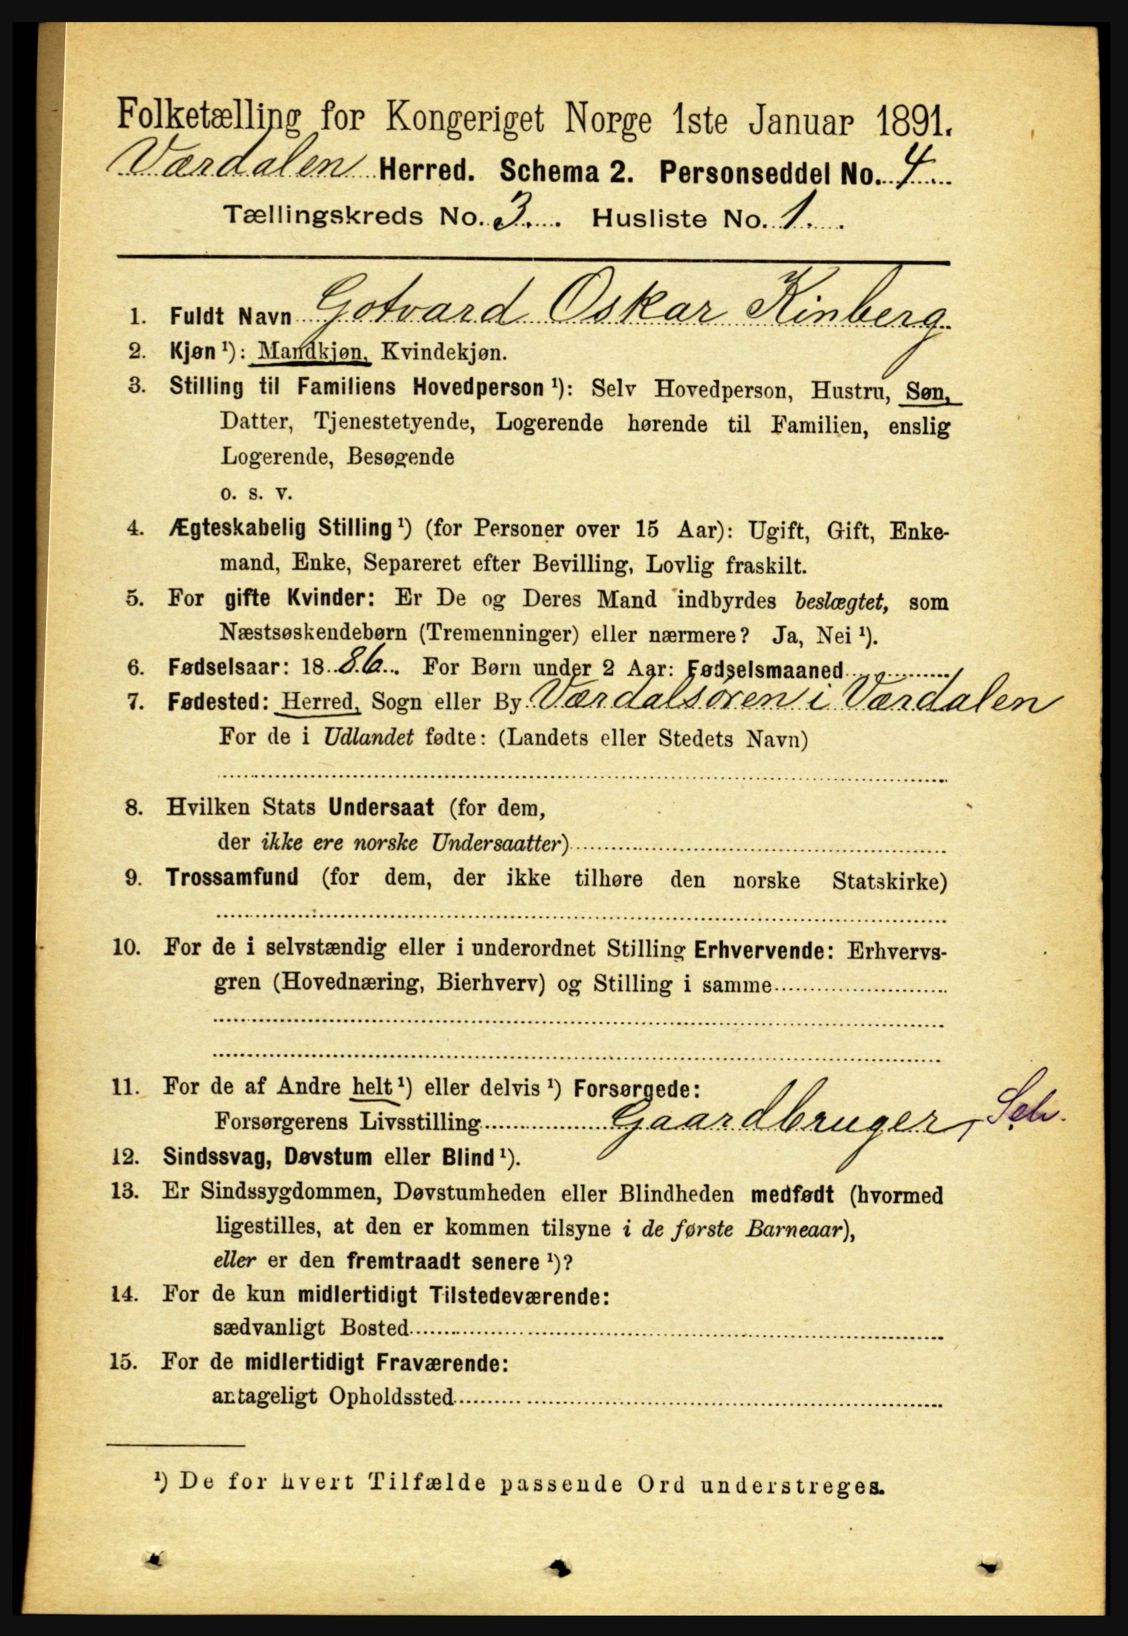 Folketælling for Kongeriget Norge 1ste Januar 1891.
Værdalen Herred. Schema 2. Personseddel No. 4
Tællingskreds No. 3. Husliste No. 1.
1. Fuldt Navn Gotvard Oskar Kinberg
2. Kjøn ¹): Mandkjøn, Kvindekjøn.
3. Stilling til Familiens Hovedperson ¹): Selv Hovedperson, Hustru, Søn,
Datter, Tjenestetyende, Logerende hørende til Familien, enslig
Logerende, Besøgende
o. s. v.
4. Ægteskabelig Stilling ¹) (for Personer over 15 Aar): Ugift, Gift, Enke-
mand, Enke, Separeret efter Bevilling, Lovlig fraskilt.
5. For gifte Kvinder: Er De og Deres Mand indbyrdes beslægtet, som
Næstsøskendebørn (Tremenninger) eller nærmere? Ja, Nei ¹).
6. Fødselsaar: 1886. For Børn under 2 Aar: Fødselsmaaned
7. Fødested: Herred, Sogn eller By Værdalsøren i Værdalen
For de i Udlandet fødte: (Landets eller Stedets Navn)
8. Hvilken Stats Undersaat (for dem,
der ikke ere norske Undersaatter)
9. Trossamfund (for dem, der ikke tilhøre den norske Statskirke)
10. For de i selvstændig eller i underordnet Stilling Erhvervende: Erhvervs-
gren (Hovednæring, Bierhverv) og Stilling i samme
11. For de af Andre helt ¹) eller delvis ¹) Forsørgede:
Forsørgerens Livsstilling Gaardbruger, Selv.
12. Sindssvag, Døvstum eller Blind ¹).
13. Er Sindssygdommen, Døvstumheden eller Blindheden medfødt (hvormed
ligestilles, at den er kommen tilsyne i de første Barneaar),
eller er den fremtraadt senere ¹)?
14. For de kun midlertidigt Tilstedeværende:
sædvanligt Bosted
15. For de midlertidigt Fraværende:
antageligt Opholdssted
¹) De for hvert Tilfælde passende Ord understreges.